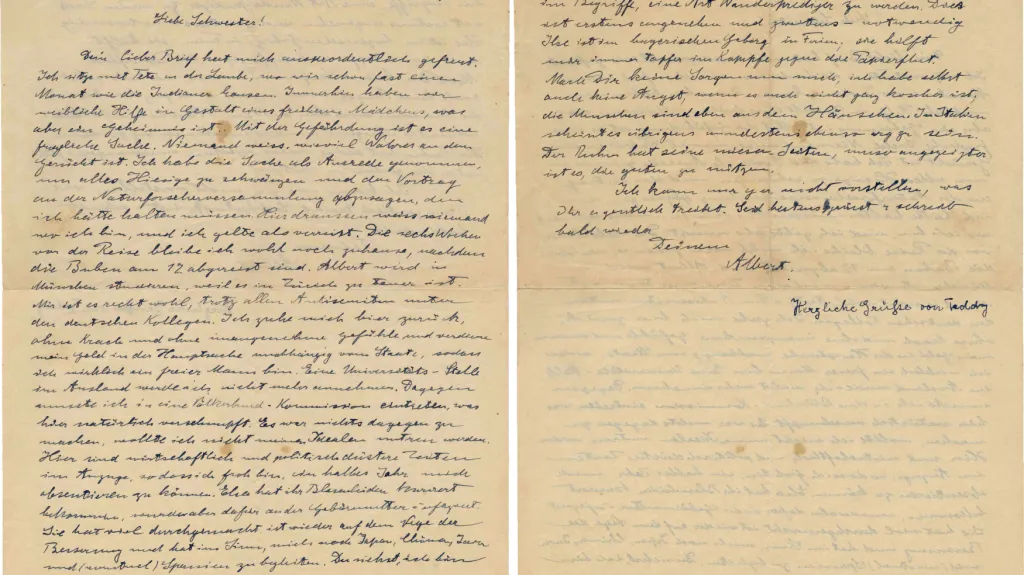 Liebe Schwester!
Dein lieber Brief hat mich ausserordentlich gefreut.
Ich sitze mit Tete in der Laube, wo wir schon fast einen
Monat wie die Indianer hausen. Immerhin haben wir
weibliche Hilfe in Gestalt eines früheren Mädchens, was
aber ein Geheimnis ist. Mit der Gefährdung ist es eine
fragliche Sache. Niemand weiss, wieviel Wahres an dem
Gerücht ist. Ich habe die Sache als Ausrede genommen,
um alles Hiesige zu schwänzen und den Vortrag
an der Naturforscherversammlung abzusagen, den
ich hätte halten müssen. Hier draussen weiss niemand
wo ich bin, und ich gelte als verreist. Die sechs Wochen
vor der Reise bleibe ich wohl noch zuhause, nachdem
die Buben am 12 abgereist sind. Albert wird in
München studieren, weil es in Zürich zu teuer ist.
Mir ist es recht wohl, trotz allen Antisemiten unter
den deutschen Kollegen. Ich ziehe mich hier zurück,
ohne Krach und ohne unangenehme Gefühle und verdiene
mein Geld in der Hauptsache unabhängig vom Staate, sodass
ich wirklich ein freier Mann bin. Eine Universitäts-Stelle
im Ausland werde ich nicht mehr annehmen. Dagegen
musste ich in eine Völkerbund-Kommission eintreten, was
hier natürlich verschnupft. Es war nichts dagegen zu
machen, wollte ich nicht meinen Idealen untreu werden.
Hier sind wirtschaftlich und politisch düstere Zeiten
im Anzuge, sodass ich froh bin, ein halbes Jahr mich
absentieren zu können. Elsa hat ihr Blasenleiden
bekommen, wurde aber dafür an der Gebärmutter
Sie hat viel durchgemacht, ist wieder auf dem Wege der
Besserung und hat im Sinn, mich nach Japan, China, Java
und (eventuel) Spanien zu begleiten. Du siehst, ich bin
im Begriffe, eine Art Wanderprediger zu werden. Dies
ist erstens angenehm und zweitens – notwendig
Ilse ist im bayerischen Gebirg in Ferien, sie hilft
mir immer tapfer im Kampfe gegen die Papierflut.
Mach Dir keine Sorgen um mich, ich habe selbst
auch keine Angst, wenn es auch nicht ganz koscher ist,
die Menschen sind eben aus dem Häuschen. In Italien
scheint es übrigens mindestens ebenso arg zu sein.
Der Ruhm hat seine miesen Seiten, umso angezeigter
ist es, die guten zu nützen.
Ich kann mir gar nicht vorstellen, was
Ihr eigentlich treibt. Seid herzlich gegrüsst & schreib
bald wieder
Deinem
Albert.
Herzliche Grüsse von Teddy